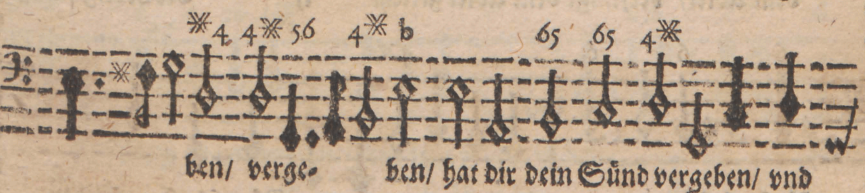 ※4 4※ 56 4※ b 65 65 4※
ben/ verge- ben/ hat dir dein Sünd vergeben/ vnd